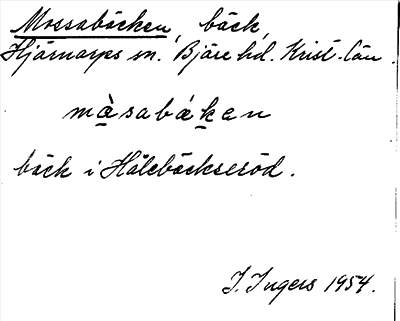 Mossabäcken, bäck,
Hjärnarps sn. Bjäre hd. Krist. län.
mòsabákan
bäck i Hålebäckseröd.
I. Ingers 1954.